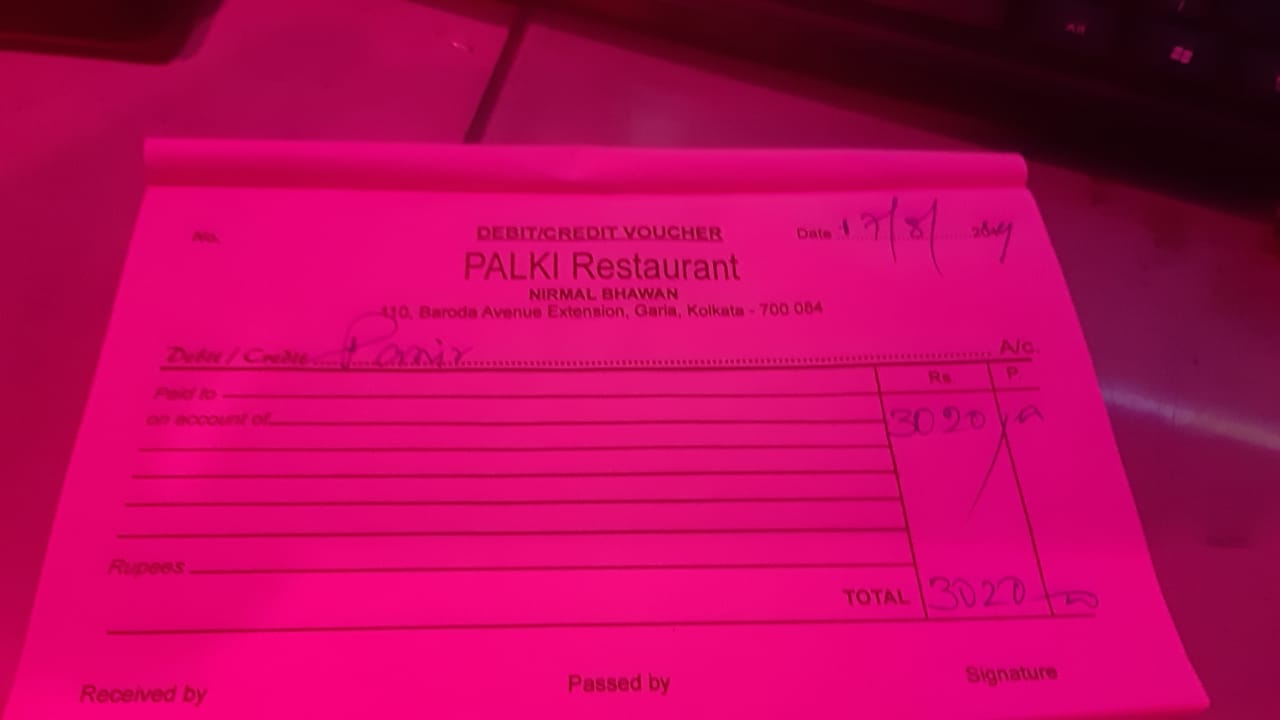 No. DEBIT/CREDIT VOUCHER Date 17/8/ 2019
PALKI Restaurant
NIRMAL BHAWAN
110, Baroda Avenue Extension, Garia, Kolkata - 700 084
Debit / Credit A/c.
Rs. P.
Paid to
on account of 3020
Rupees
TOTAL 3020
Received by Passed by Signature
Alt